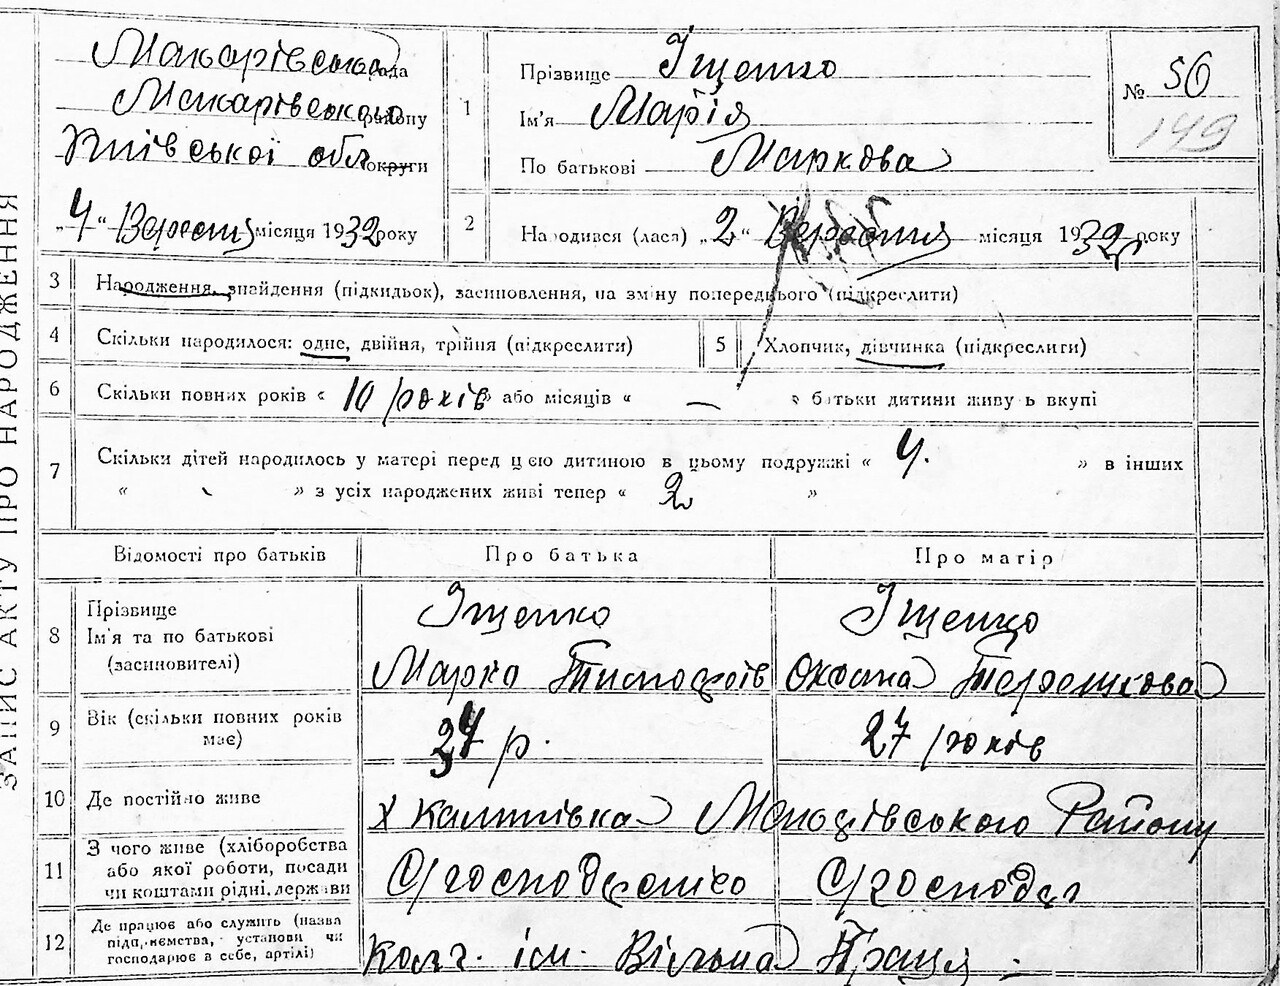 ЗАПИС АКТУ ПРО НАРОДЖЕННЯ
Макарівська рада
Макарівського району
Київської обл округи
„4“ Вересня місяця 1932 року
1
Прізвище Іщенко
Ім'я Марія
По батькові Маркова
№ 56
149
2
Народився (лася) „2“ Вересня місяця 1932 року
3 Народження, знайдення (підкидьок), засиновлення, на зміну попереднього (підкреслити)
4 Скільки народилося: одне, двійня, трійня (підкреслити)
5 Хлопчик, дівчинка (підкреслити)
6 Скільки повних років « 10 років » або місяців « — » батьки дитини живуть вкупі
7 Скільки дітей народилось у матері перед цією дитиною в цьому подружжі « 4. » в інших
« » з усіх народжених живі тепер « 2 »
Відомості про батьків Про батька Про матір
8 Прізвище Іщенко Іщенко
Ім'я та по батькові
(засиновителі) Марко Оксана Терешкова
9 Вік (скільки повних років має) р. 27 років
10 Де постійно живе х Калинівка Макарівського Району
11 З чого живе (хліборобства
або якої роботи, посади
чи коштами рідні, держави
12 Де працює або служить (назва
підприємства, установи чи
господарює в себе, артілі)
колг. ім. Вільна Праця -